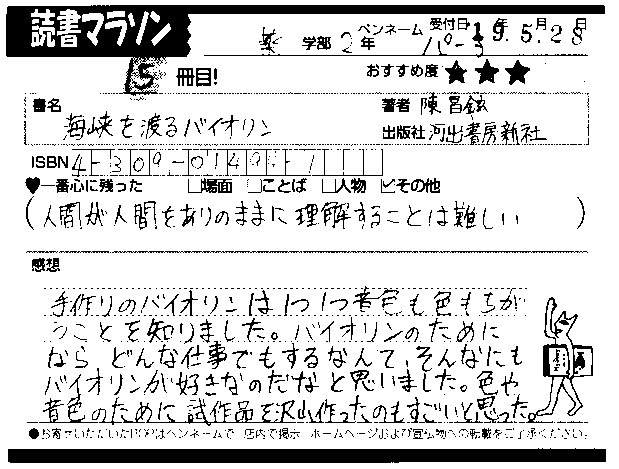 読書マラソン
薬 学部 2年 ペンネーム パーラ 受付日 19年5月28日
15 冊目! おすすめ度 ★★★
書名 海峡を渡るバイオリン
著者 陳昌鉉
出版社 河出書房新社
ISBN 4-309-0149
♥一番心に残った □場面 □ことば □人物 ☑その他
(人間が人間をありのままに理解することは難しい)
感想
手作りのバイオリンは1つ1つ音色も色もちが
うことを知りました。バイオリンのために
なら どんな仕事でもするなんて、そんなにも
バイオリンが好きなのだなと思いました。色や
音色のために試作品を沢山作ったのもすごいと思った。
●お寄せいただいたPOPはペンネームで 店内で掲示 ホームページおよび宣伝物への転載をご了承ください。